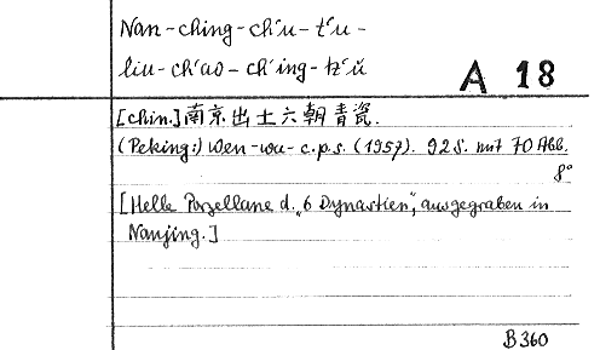 Nan-ching-ch'u-t'u-
liu-ch'ao-ch'ing-tz'ŭ
A 18
[chin.] 南京出土六朝青瓷.
(Peking:) Wen-wu-c.p.s. (1957). 92 S. mit 70 Abb.
8°
[Helle Porzellane d. „6 Dynastien", ausgegraben in
Nanjing.]
B 360